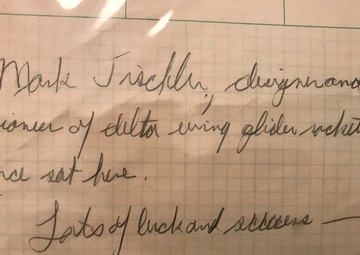 Mark Fischler, designer and
pioneer of delta wing glider rockets
once sat here.
Lots of luck and success —